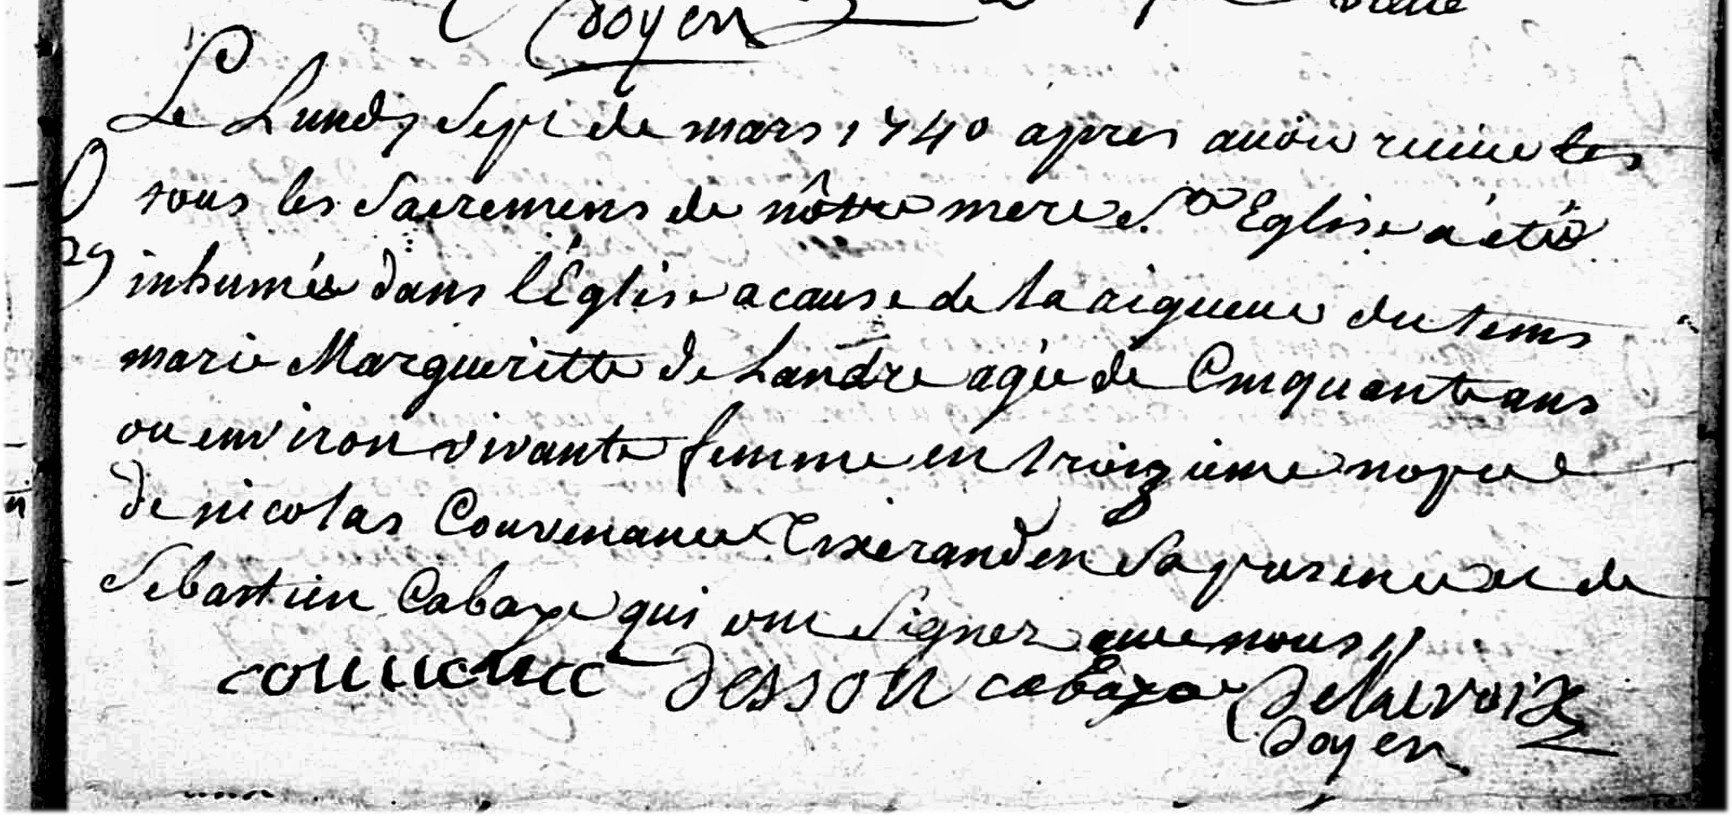 doyen
Le Lundy Sept de mars 1740 apres avoir receue les
tous les Sacremens de nôtre mere Ste Eglise a été
inhumée dans l'Église a cause de la rigueur du tems
marie Margueritte de Landre agée de Cinquante ans
ou environ vivante femme en troizieme nopce
de nicolas Couvenance Tixerand en Sa presence et de
Sebastien Cabaxe qui ont Signer avec nous //
29
couuenance desson cabaxe Delavoix
doyen